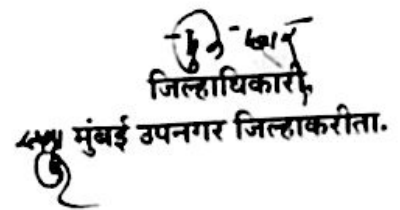 जिल्हाधिकारी,
मुंबई उपनगर जिल्हाकरीता.